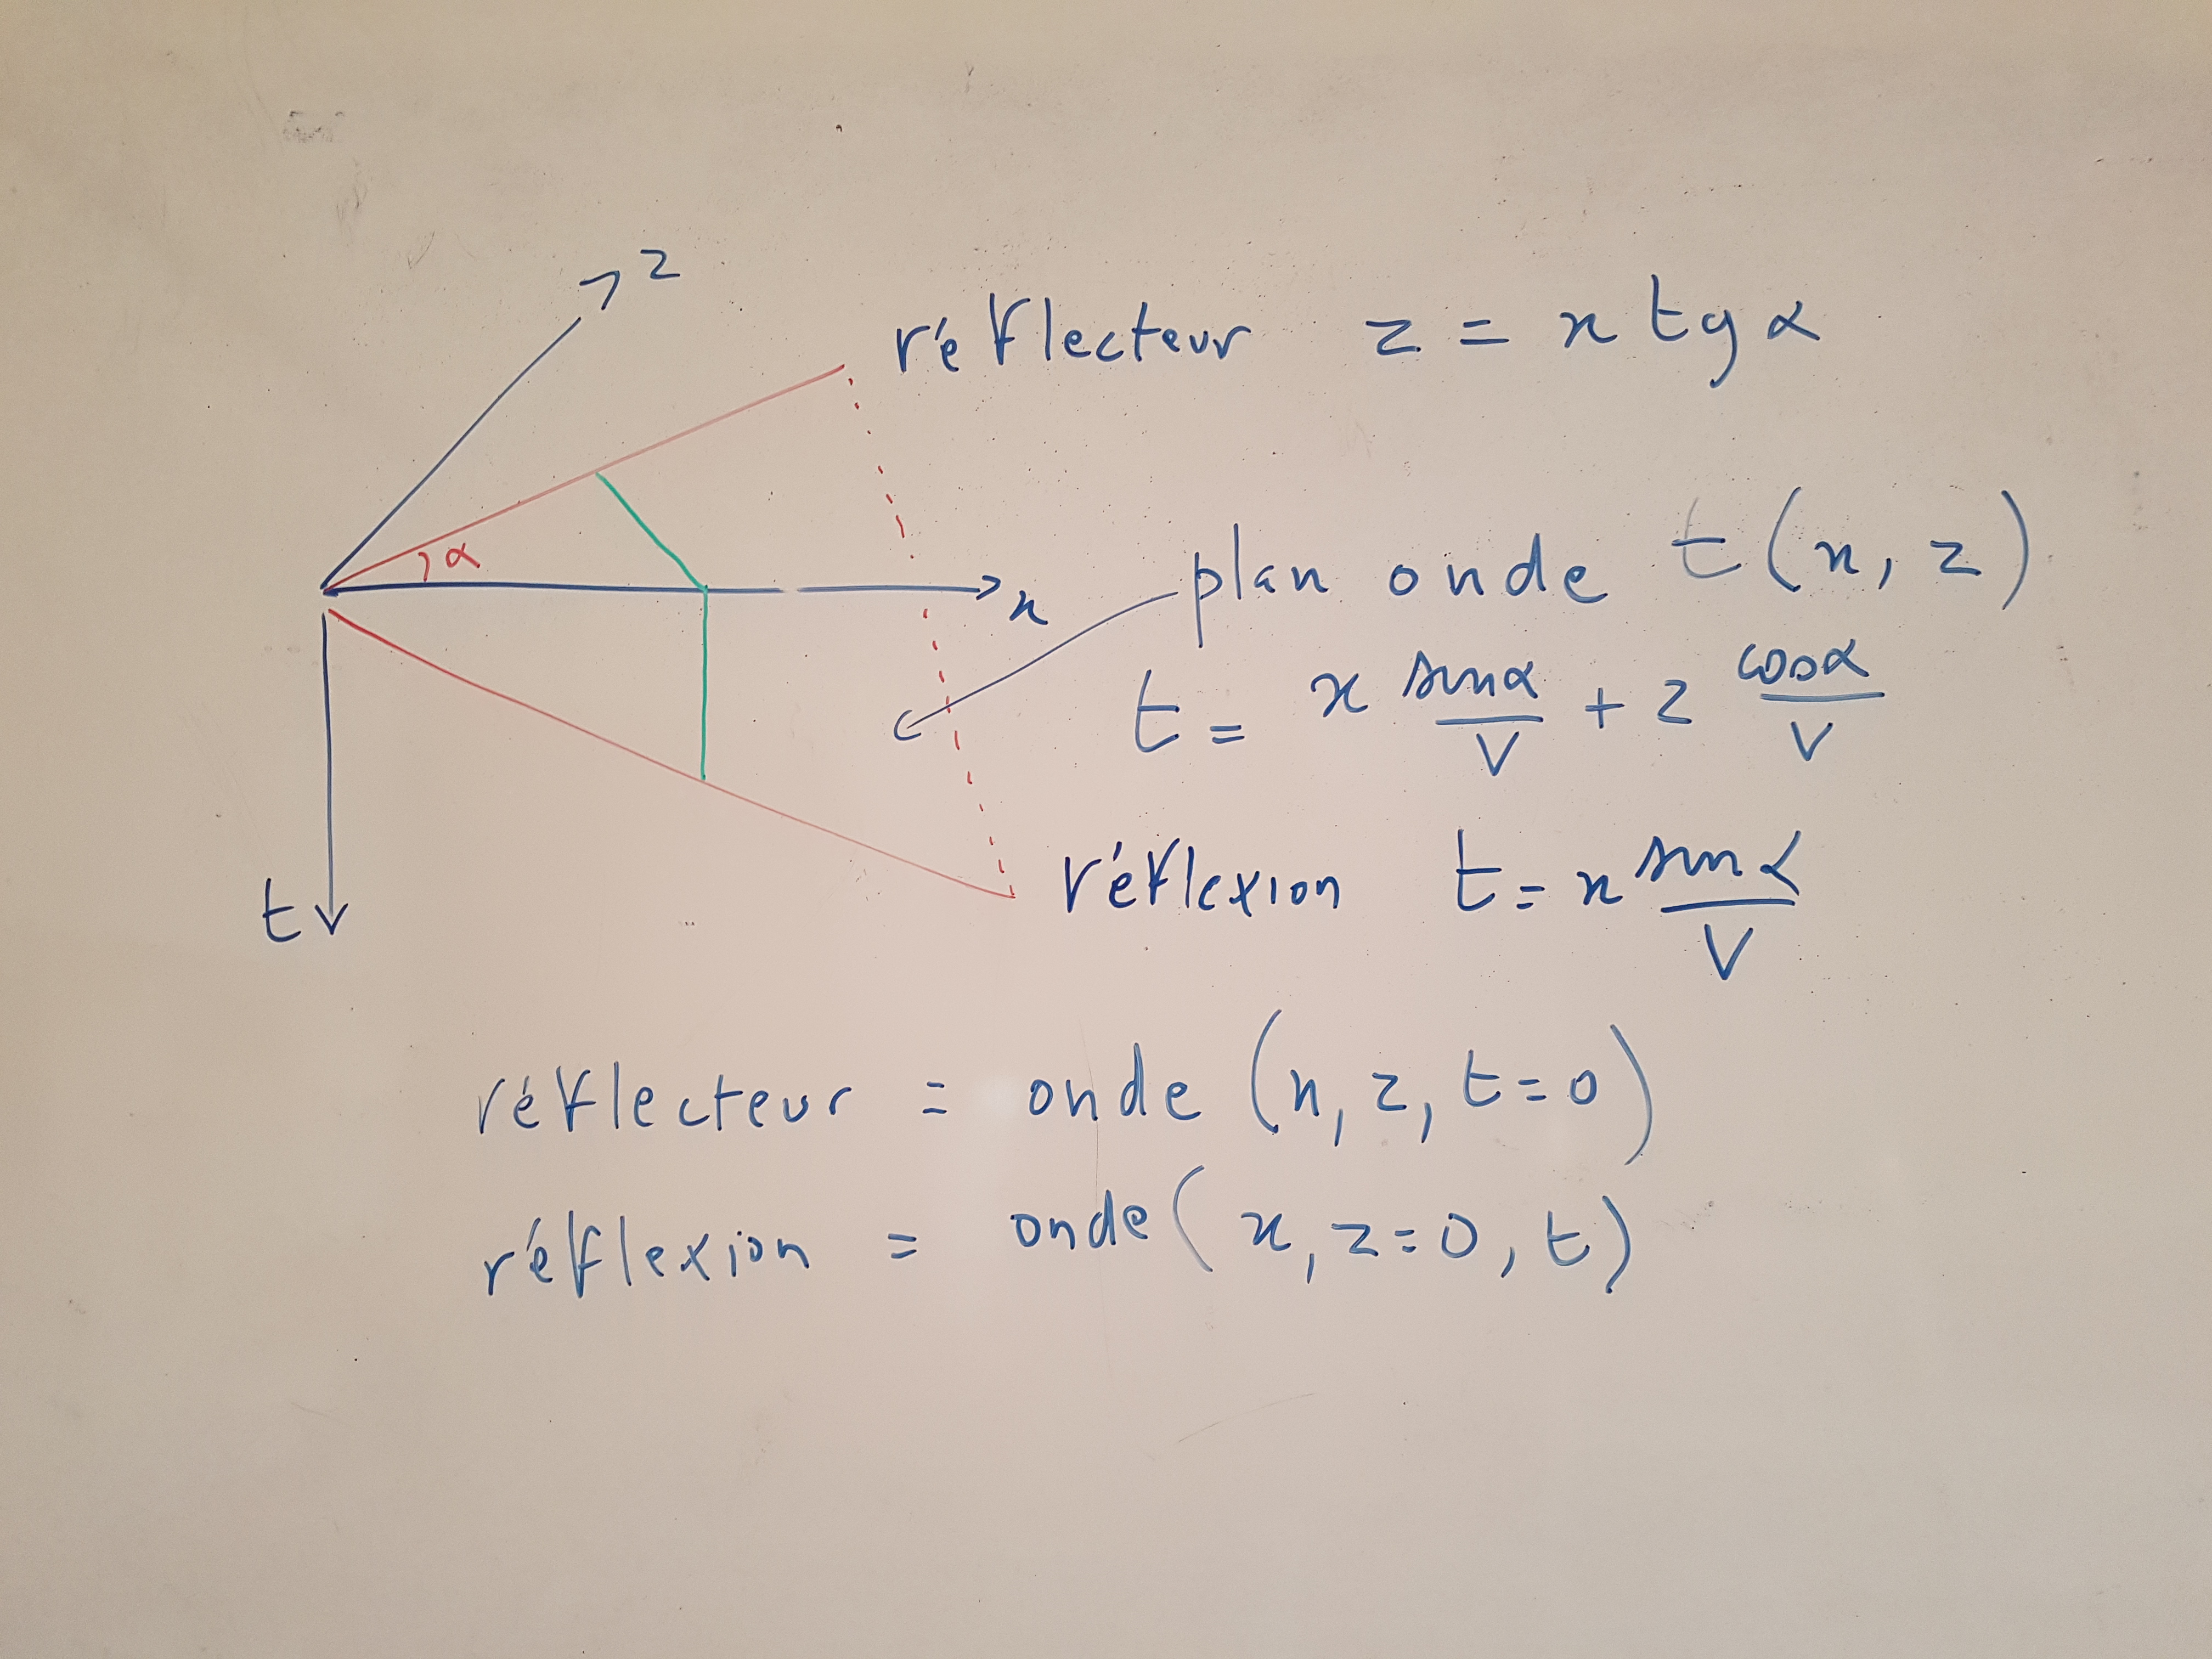 z
réflecteur z = x tg α
α
x
plan onde t(x, z)
t = x sinα/V + z cosα/V
réflexion t = x sinα/V
t
réflecteur = onde (x, z, t=0)
réflexion = onde (x, z=0, t)